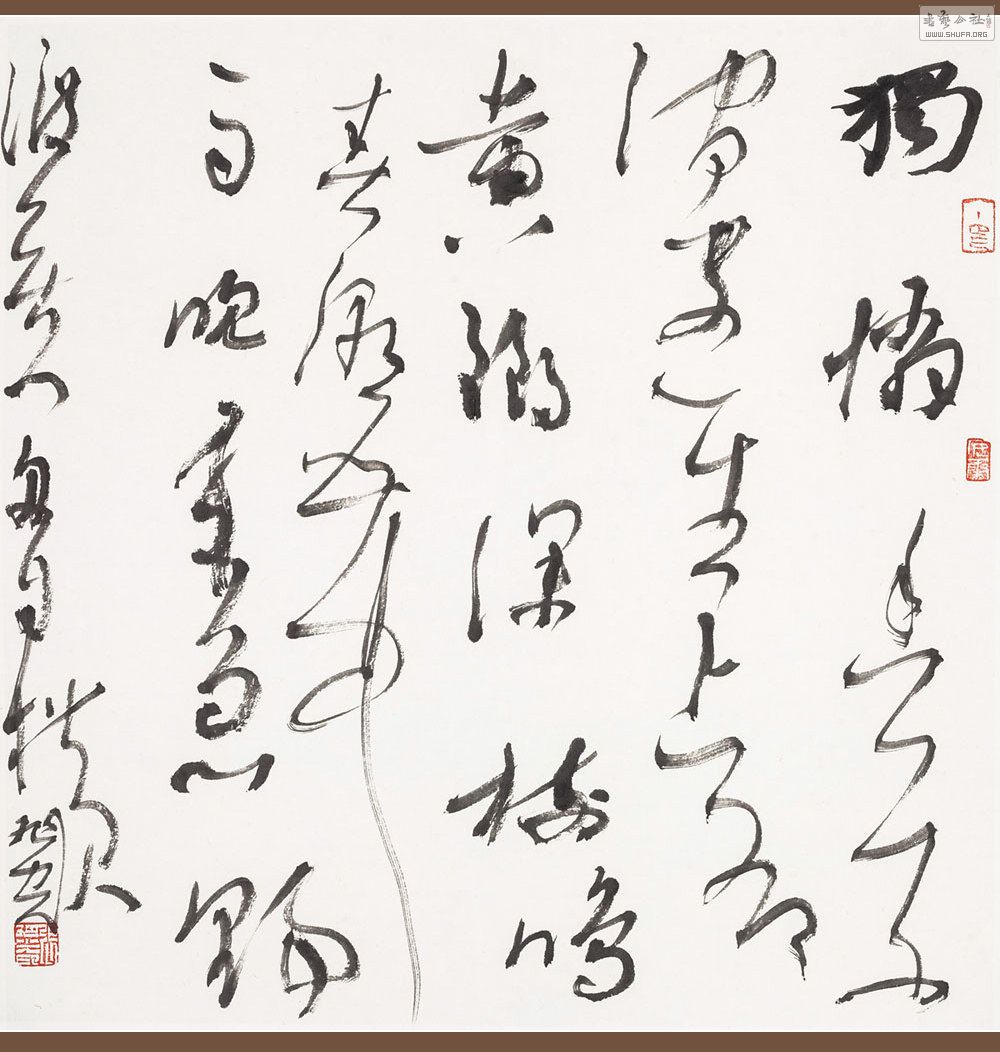 書藝公社
WWW.SHUFA.ORG
獨憐幽草
澗邊生上有
黃鸝深樹鳴
春潮帶
雨晚來急野
渡無人舟自橫
旭光